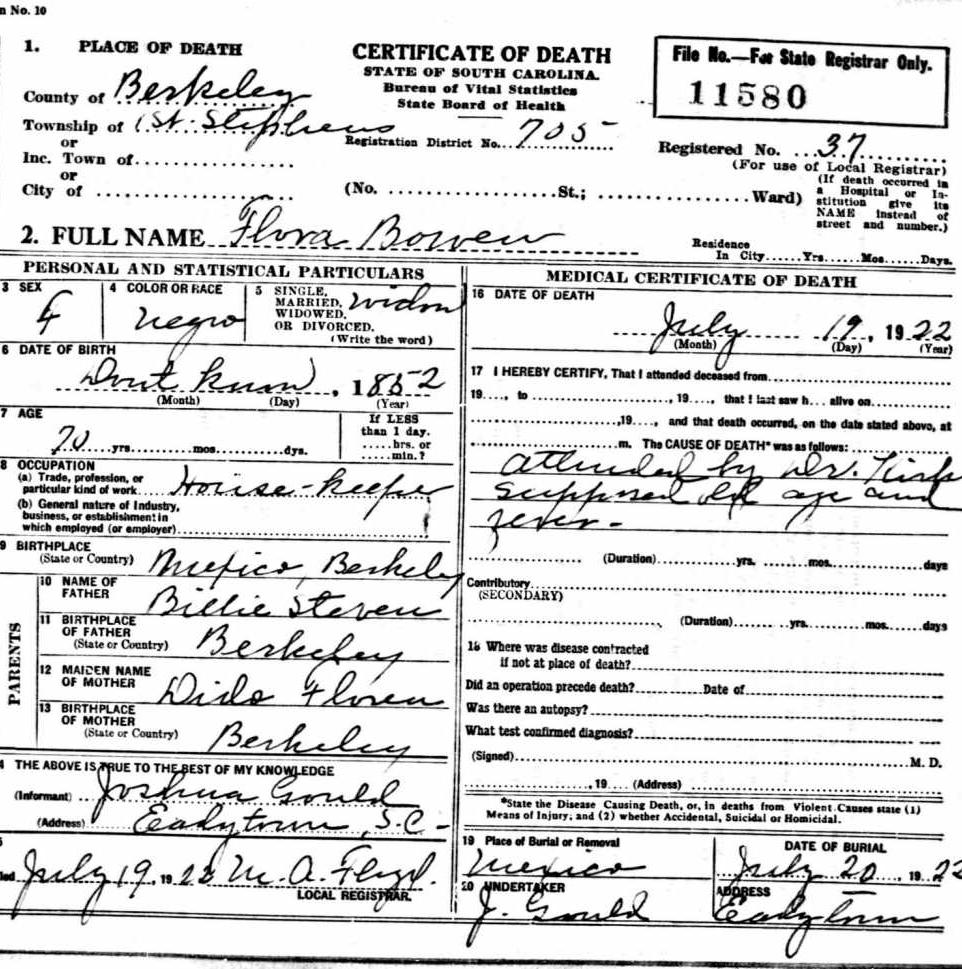 n No. 10
1. PLACE OF DEATH
County of Berkeley
Township of St. Stephens
or
Inc. Town of
or
City of
CERTIFICATE OF DEATH
STATE OF SOUTH CAROLINA.
Bureau of Vital Statistics
State Board of Health
Registration District No. 705
File No.—For State Registrar Only.
11580
Registered No. 37
(For use of Local Registrar)
(No. St.; Ward)
(If death occurred in
a Hospital or In-
stitution give its
NAME instead of
street and number.)
2. FULL NAME Flora Bowen
Residence
In City......Yrs......Mos......Days.
PERSONAL AND STATISTICAL PARTICULARS
3 SEX
F
4 COLOR OR RACE
negro
5 SINGLE,
MARRIED,
WIDOWED,
OR DIVORCED.
(Write the word)
widow
6 DATE OF BIRTH
Dont know, 1852
(Month) (Day) (Year)
7 AGE
70 yrs. mos. dys.
If LESS
than 1 day.
hrs. or
min.?
8 OCCUPATION
(a) Trade, profession, or
particular kind of work House-keeper
(b) General nature of Industry,
business, or establishment in
which employed (or employer)
9 BIRTHPLACE
(State or Country) Mexico, Berkeley
PARENTS
10 NAME OF
FATHER
Billie Steven
11 BIRTHPLACE
OF FATHER
(State or Country)
Berkeley
12 MAIDEN NAME
OF MOTHER
13 BIRTHPLACE
OF MOTHER
(State or Country)
Berkeley
4 THE ABOVE IS TRUE TO THE BEST OF MY KNOWLEDGE
(Informant) Joshua Gould
(Address) Eadytown, S.C-
July 19, 1922 M. A.
LOCAL REGISTRAR.
MEDICAL CERTIFICATE OF DEATH
16 DATE OF DEATH
July 19, 1922
(Month) (Day) (Year)
17 I HEREBY CERTIFY, That I attended deceased from
19...., to , 19...., that I last saw h... alive on
,19...., and that death occurred, on the date stated above, at
m. The CAUSE OF DEATH* was as follows:
attended by Dr. Kirk
supposed old age and
fever-
(Duration) yrs. mos. days
Contributory
(SECONDARY)
(Duration) yrs. mos. days
18 Where was disease contracted
if not at place of death?
Did an operation precede death? Date of
Was there an autopsy?
What test confirmed diagnosis?
(Signed) M. D.
, 19 (Address)
*State the Disease Causing Death, or, in deaths from Violent Causes state (1)
Means of Injury; and (2) whether Accidental, Suicidal or Homicidal.
19 Place of Burial or Removal
Mexico
DATE OF BURIAL
July 20, 1922
20 UNDERTAKER
J. Gould
ADDRESS
Eadytown